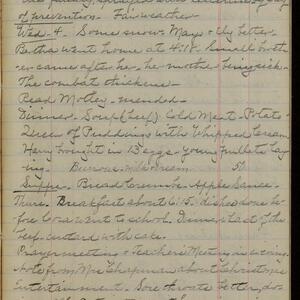 of prevention. Fair weather.
Wed - 4. Some snow. Mary's cly better.
Bertha went home at 4:18. Small broth-
er came after her, her mother being sick.
The combat thickens -
Read Motley - mended -
Dinner. Soup (beef). Cold Meat. Potato.
Queen of Puddings with Whipped Cream.
Harry brought in 13 eggs - young pullets lay-
ing. Burrows with Cream 5¢
Supper. Bread Crumbs. Apple Sauce.
Thurs. Breakfast about 6:15. dishes done be-
fore Cora went to school. Dinner, last of the
beef - custard with cake.
Prayer meeting & Teachers' Meeting in evening.
Note from Mrs Chapman about Christmas
Entertainment. Sore throats better, do-